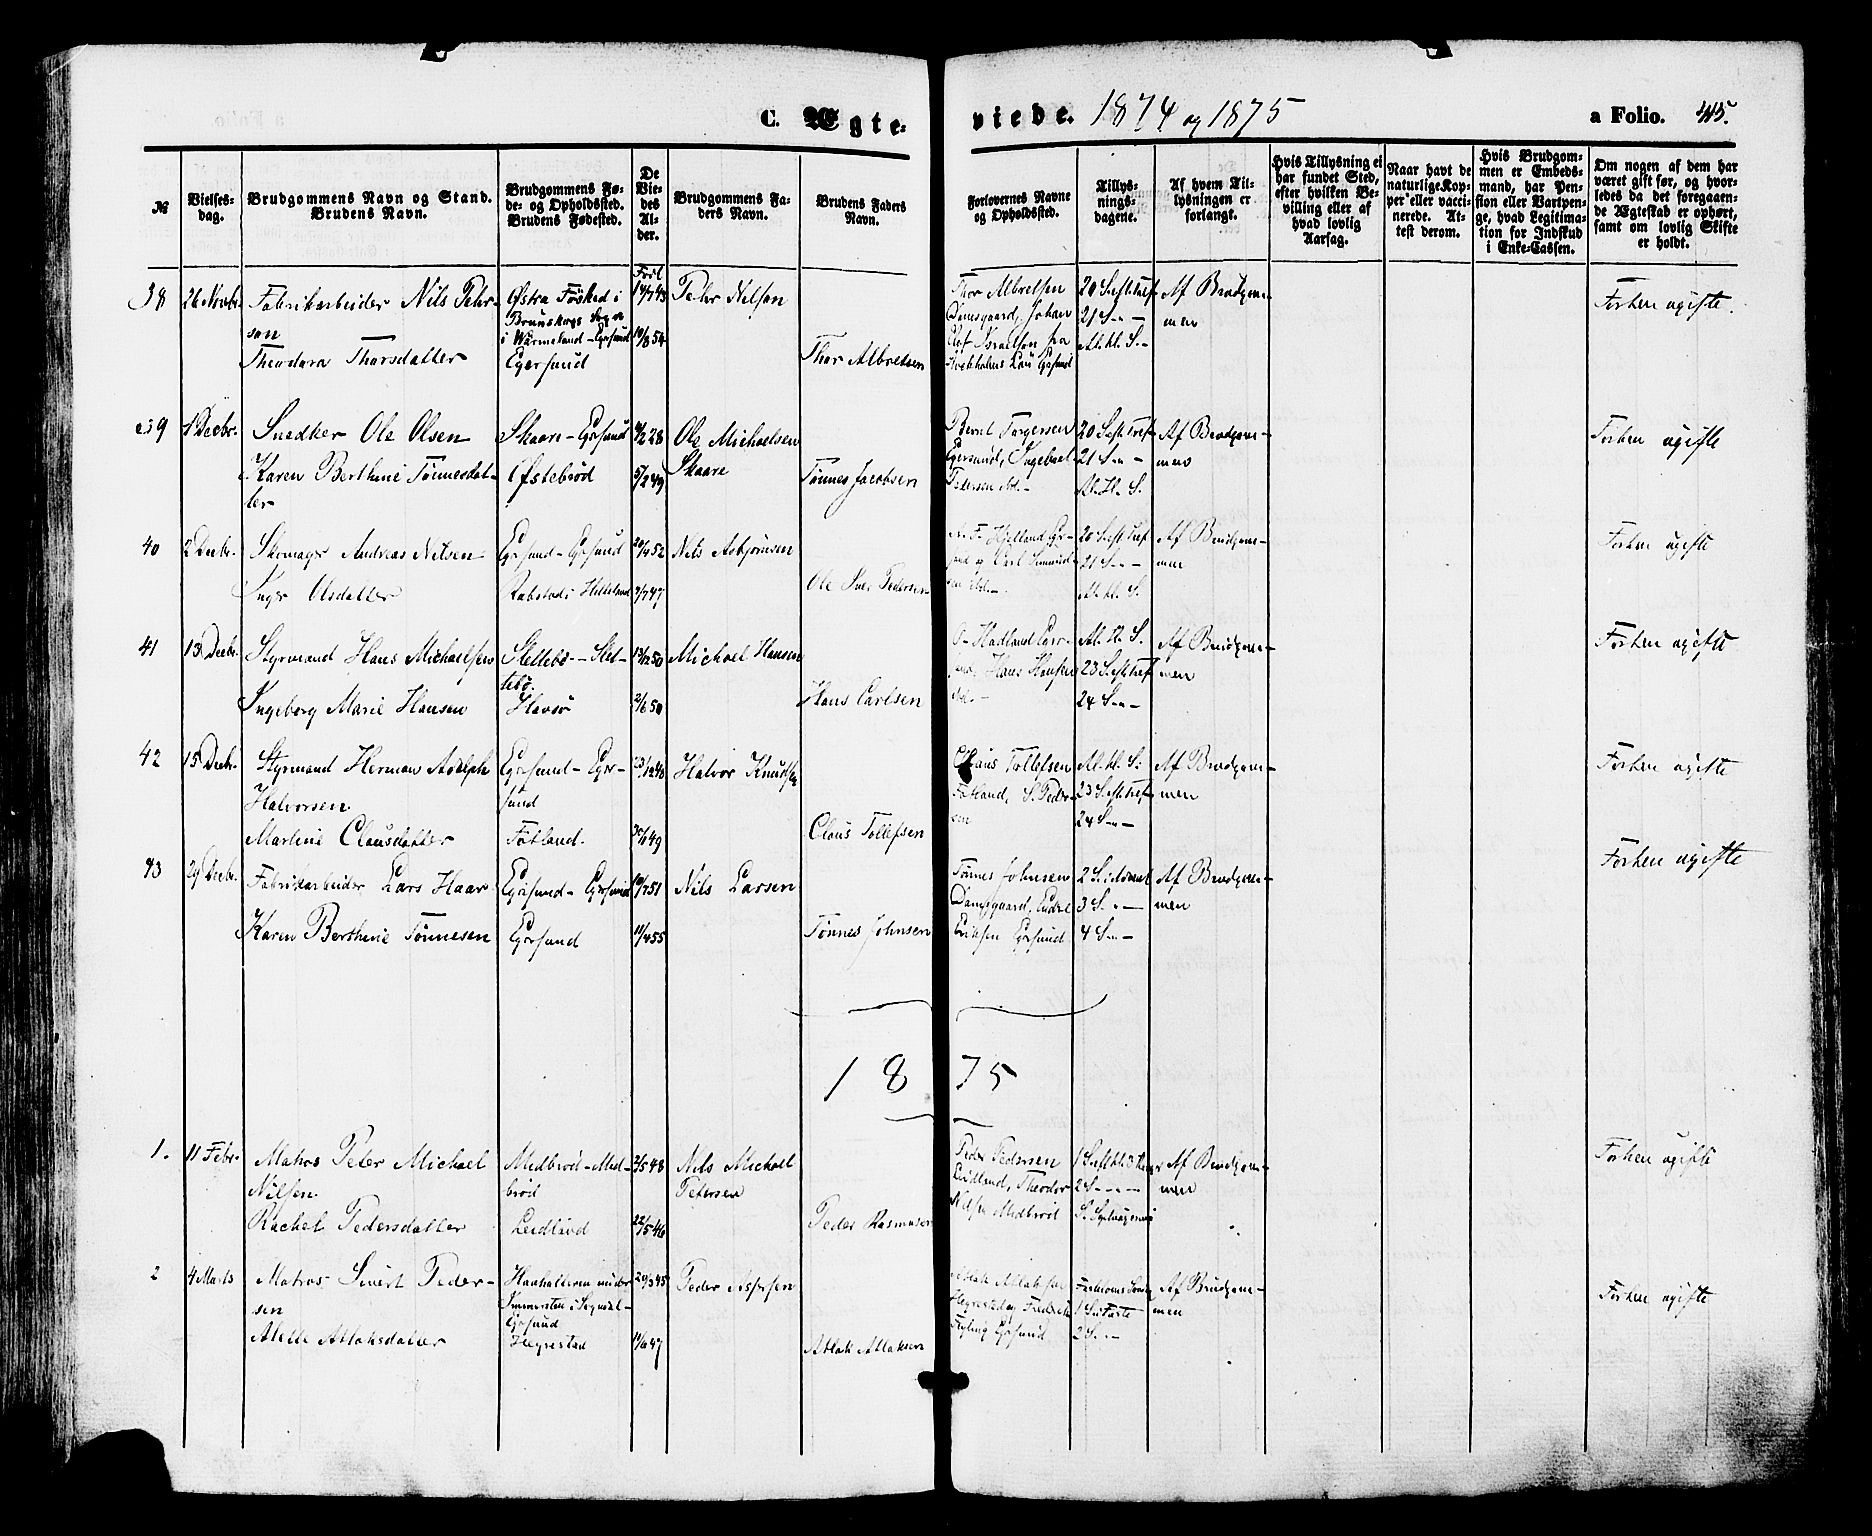 C. Ægte-
viede. 1874 og 1875
a Folio. 415.
№
Vielses-
dag.
Brudgommens Navn og Stand.
Brudens Navn.
Brudgommens Fø-
de- og Opholdssted.
Brudens Fødested.
De
Vie-
des
Al-
der.
Brudgommens Fa-
ders Navn.
Brudens Faders
Navn.
Forlovernes Navne
og Opholdssted.
Tillys-
nings-
dagene.
Af hvem Til-
lysningen er
forlangt.
Hvis Tillysning ei
har fundet Sted,
efter hvilken Be-
villing eller af
hvad lovlig
Aarsag.
Naar havt de
naturlige Kop-
per eller vacci-
nerede. At-
test derom.
Hvis Brudgom-
men er Embeds-
mand, har Pen-
sion eller Vartpen-
ge, hvad Legitima-
tion for Indskud
i Enke-Cassen.
Om nogen af dem har
været gift før, og hvor-
ledes da det foregaaen-
de Ægteskab er ophørt,
samt om lovlig Skifte
er holdt.
38 26 Novbr. Fabrikarbeider Nils Pehr-
son
Theodora Thorsdatter
Østra Fösked i
Brunskogs Sogn
i Wärmeland - Egersund
Egersund
Född
14/7 43
10/8 54
Pehr Nilson
Thor Albretsen
Thor Albretsen
Damsgaard, Johan
Olof
20 S. eft. Tref.
21 S - " -
Al. hl. S. -
Af Brudgom-
men
Forhen ugifte.
39 1 Decbr. Snedker Ole Olsen
Karen Berthine Tønnesdat-
ter
Skaare - Egersund
Østebrød
4/2 28
5/2 49
Ole Michaelsen
Skaare
Tønnes Jacobsen
Bernt Torgersen
Egersund, Ingebret
Pedersen ibd. -
20 S. eft. Tref.
21 S - " -
Al. Hl. S.
Af Brudgom-
mens
Forhen ugifte
40 2 Decbr. Skomager Andreas Nilsen
Inger Olsdatter
Egersund - Egersund
Rabstad i Helleland
20/4 52
9/7 47
Nils Asbjørnsen
Ole Pedersen
Hjelland
20 S. eft. Tref.
21 S - " -
Al. hl. S.
Af Brudgom-
men
Forhen ugifte
41 13 Decbr. Styrmand Hans Michaelsen
Ingeborg Marie Hansen
Slettebø - Slet-
tebø.
Havsø
13/12 50
2/6 50
Michael Hansen
Hans Carlsen
O. Hadland Eger-
sund, Hans Hansen
ibd. -
Al. Hl. S.
23 S. eft. Tref.
24 S - " -
Af Brudgom-
men
Forhen ugifte
42 15 Decbr. Styrmand Herman Adolph
Halvorsen
Martine Clausdatter
Egersund - Eger-
sund
Fotland.
23/12 48
30/6 49
Halvor Knudsen
Claus Tollefsen
Claus Tollefsen
Fotland, S. Peder-
sen
Al. hl. S.
23 S. eft. Tref.
24 S - " -
Af Brudgom-
men
Forhen ugifte
43 29 Decbr. Fabrikarbeider Lars Haar
Karen Berthine Tønnesen
Egersund - Egersund
Egersund
10/7 51
11/4 55
Nils Larsen
Tønnes Johnsen
Tønnes Johnsen
Damsgaard, Endre
Eriksen Egersund
2 S. i Advent
3 S. " -
4 S - " -
Af Brudgom-
men
Forhen ugifte
1875
1. 11 Febr. Matros Peter Michael
Nilsen
Rachel Pedersdatter
Midbrød - Mid-
brød
Leidland
2/5 48
22/5 46
Nils Michael
Petersen
Peder Rasmusen
Peder Pedersen
Leidland, Theodor
Nilsen Midbrød
1 S. eft. hl. 3 Kong.
2 S - " - -
S. Septuagesima
Af Brudgom-
men
Forhen ugifte
2 4 Marts Matros Sivert Peder-
sen
Malle Atlaksdatter
i Sogndal -
Egersund
Hegrestad
20/3 45
11/6 47
Peder Aspersen
Atlak Atlaksen
Atlak Atlaksen
Hegrestad og Fredrik
Egersund
Fastelavns Søndag
1 S. i Faste
2 S. " -
Af Brudgom-
men
Forhen ugifte